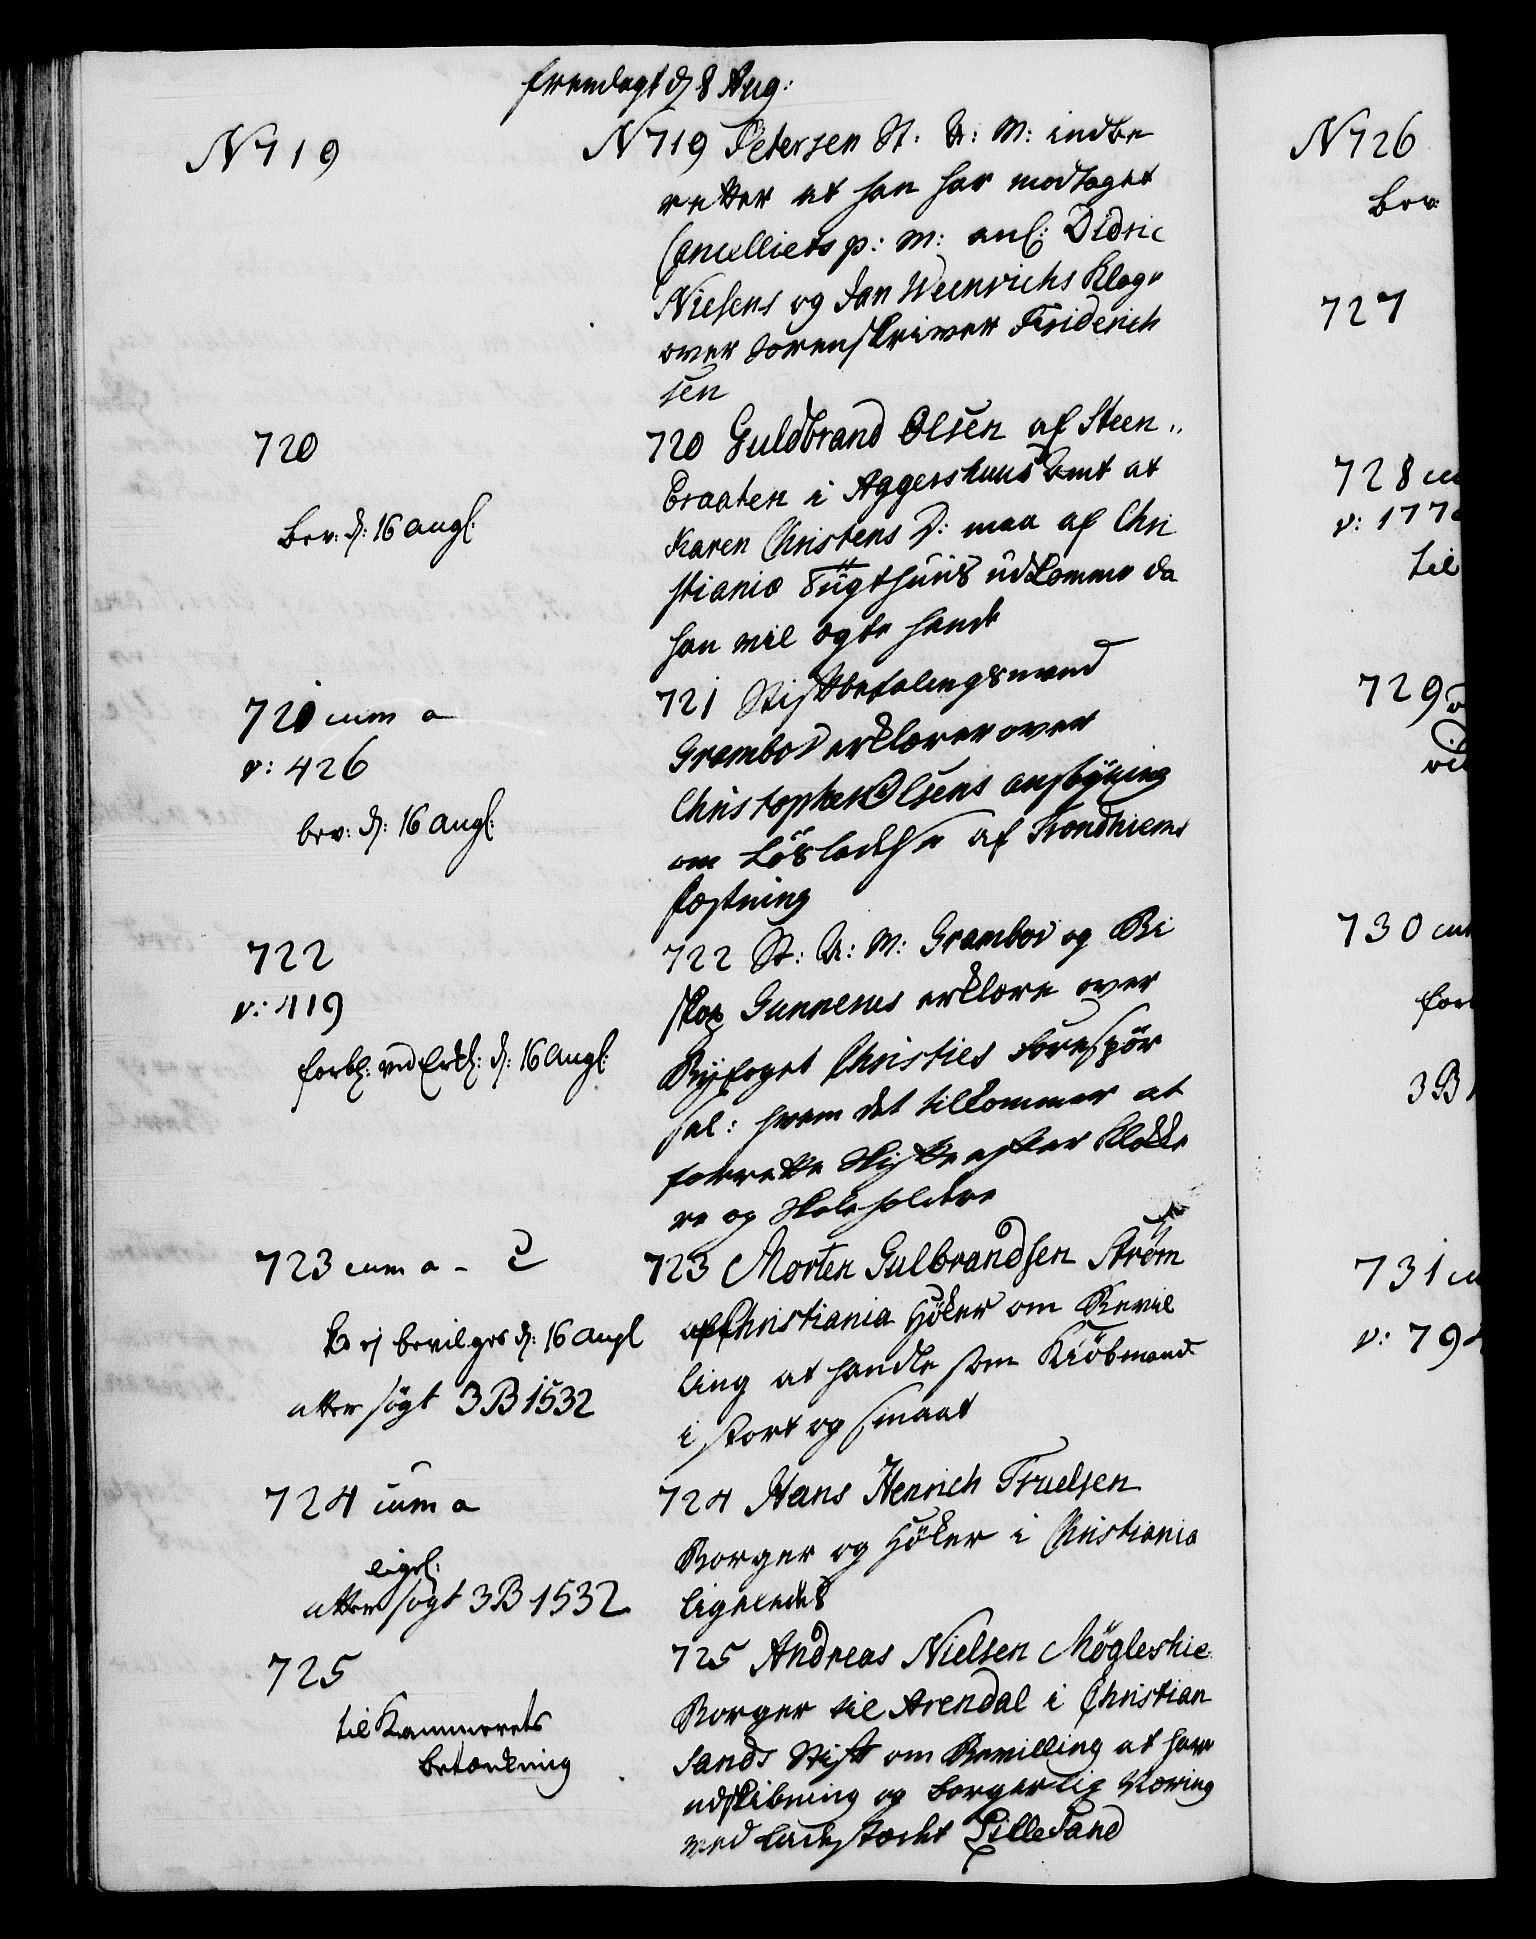 fremlagt d 8 Aug:
N 719
N 719 Petersen St: A: M: indbe
retter at han har modtaget
Cancelliets p: M: anl: Didric
Nielsens og Jan Weinrichs Klage
over Sorenskriver Friderich
sen
720
bev: d: 16 augl:
720 Guldbrand Olsen af Steen„
braaten i Aggershuus Amt at
Karen Christens D: maa af Chri
stianiæ Tügthüüs udkomme da
han vil ægte hende
721 cum a
v: 426
bev: d: 16 augl:
721 Stiftbefalingsmand
Grambov erklærer over
Christopher Olsens ansögning
om Lösladelse af Trondhiems
fæstning
722
v: 419
forbl: ved Erkl: d: 16 augl:
722 St: A: M: Grambov og Bi
skop Gunnerus erklære over
Byfoget Christies forespör
sel: hvem det tilkommer at
forrette Skifte efter Klokke
re og Skoleholdere
723 cum a - c
k: ej bevilges d: 16 augl
atter søgt 3 B 1532
723 Morten Gulbrandsen Strøm
af Christiania Höker om Bevil
ling at handle som Kiöbmand
i stort og smaat
724 cum a
ligel:
atter søgt 3 B 1532
724 Hans Henrich Truelsen
Borger og Höker i Christiania
ligeledes
725
til Kammerets
betænkning
725 Andreas Nielsen Mögleshie
Borger til Arendal i Christian
sands Stift om Bevilling at have
udskibning og borgerlig Næring
ved Ladestædet Lillesand
N 726
bev:
727
728 cu
v: 177
til
729
730 cum
for
3 B
731 cu
v: 794